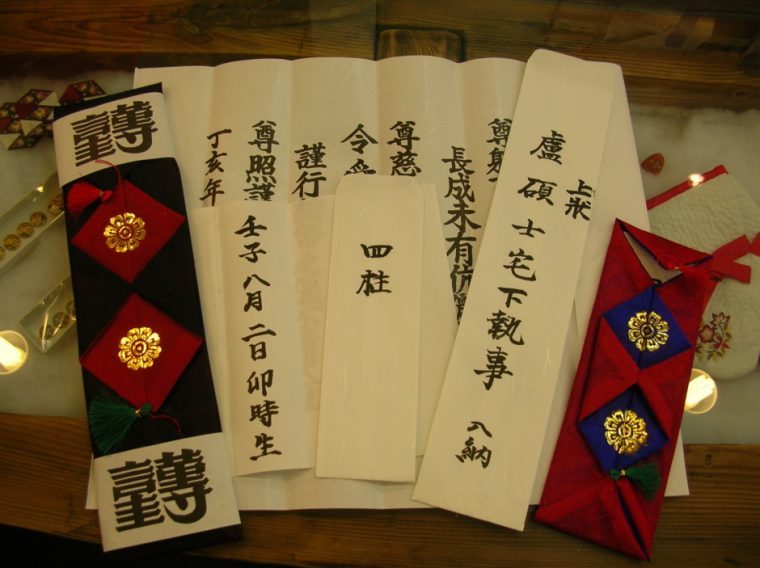 上狀
盧碩士宅下執事
入納
尊
長成未有伉
尊慈
令
謹行
尊照謹
丁亥年
四柱
壬子八月二日卯時生